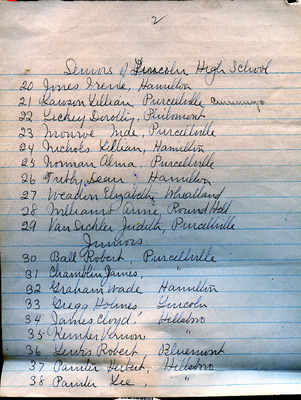 2
Seniors of Lincoln High School
20 Jones Irene, Hamilton
21 Lawson Lillian, Purcellville
22 Lickey Dorothy, Philomont
23 Monroe Inde, Purcellville
24 Nichols Lillian, Hamilton
25 Norman Alma, Purcellville
26 Tribby Dean, Hamilton
27 Weadon Elizabeth, Wheatland
28 Williams Anne, Round Hill
29 Van Sickler Judith, Purcellville
Juniors
30 Ball Robert, Purcellville
31 Chamblin James, "
32 Graham Wade Hamilton
33 Gregg Holmes Lincoln
34 James Cloyd, Hillsboro
35 Kemper Vernon "
36 Lewis Robert, Bluemont
37 Painter Herbert, Hillsboro
38 Painter Lee, "